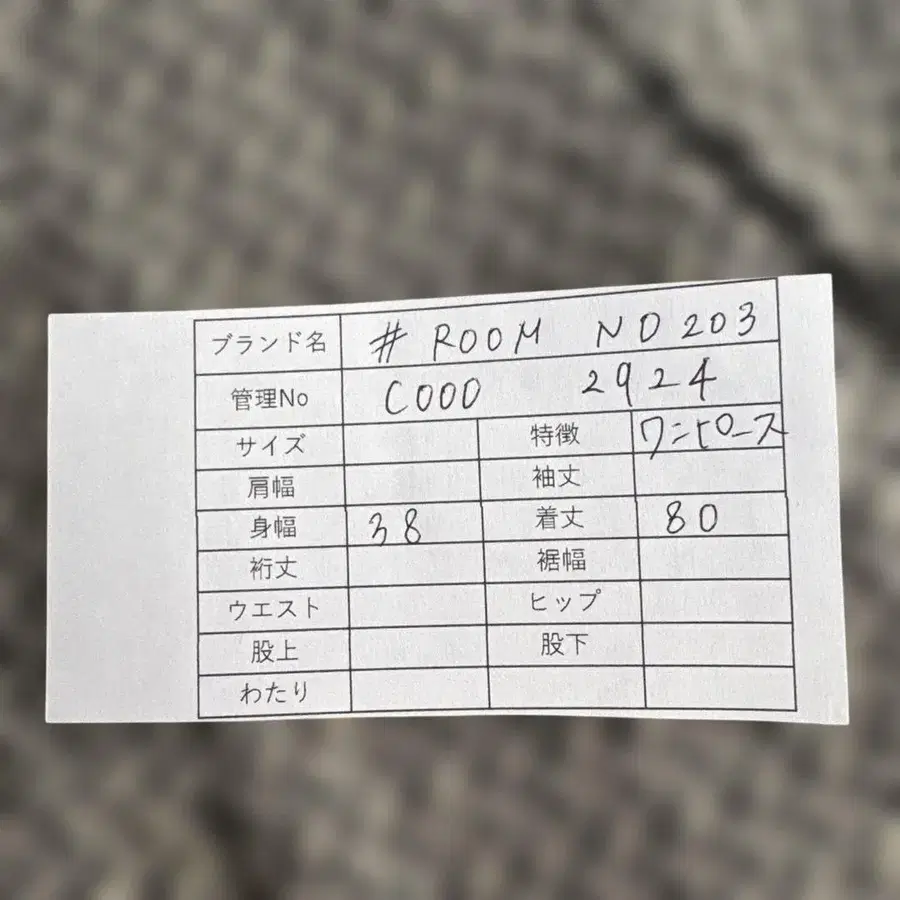 ブランド名 # ROOM NO 203
管理No C000 2924
サイズ 特徴 ワンピース
肩幅 袖丈
身幅 38 着丈 80
裄丈 裾幅
ウエスト ヒップ
股上 股下
わたり